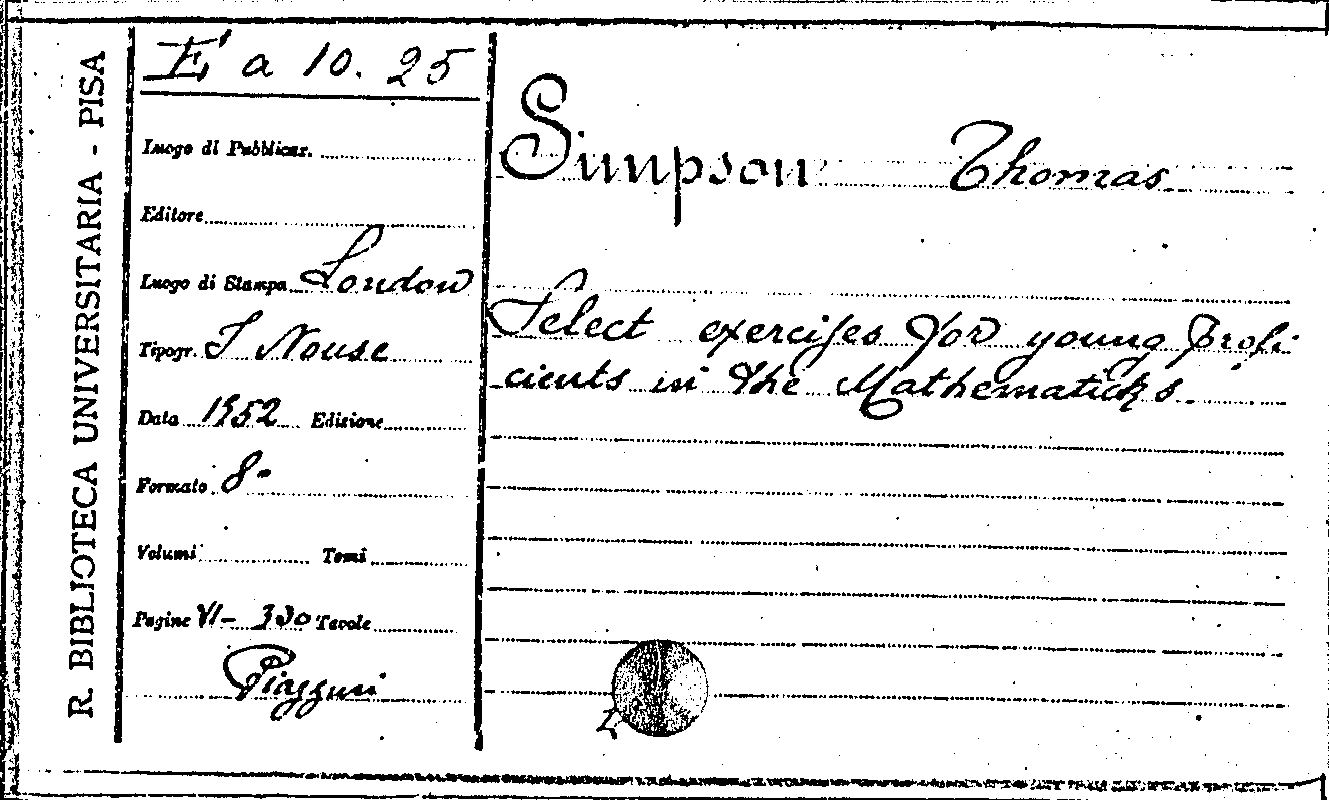 R. BIBLIOTECA UNIVERSITARIA - PISA
E' a 10. 25
Luogo di Pubblicaz.
Editore
Luogo di Stampa London
Tipogr. J Nouse
Data 1752 Edizione
Formato 8-
Volumi Tomi
Pagine VI- 300 Tavole
Simpson Thomas
Select exercises for young profi
cients in the Mathematicks.